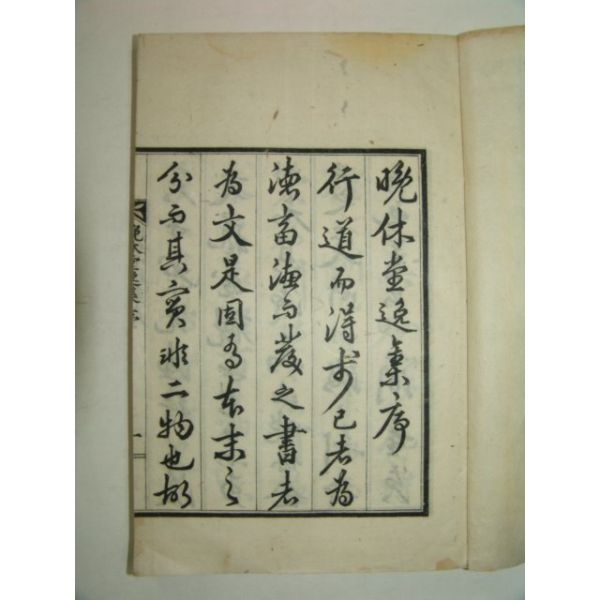 晚休堂逸集序
行道而得於己者為
德畜德而發之書者
為文是固有本末之
分而其實非二物也故